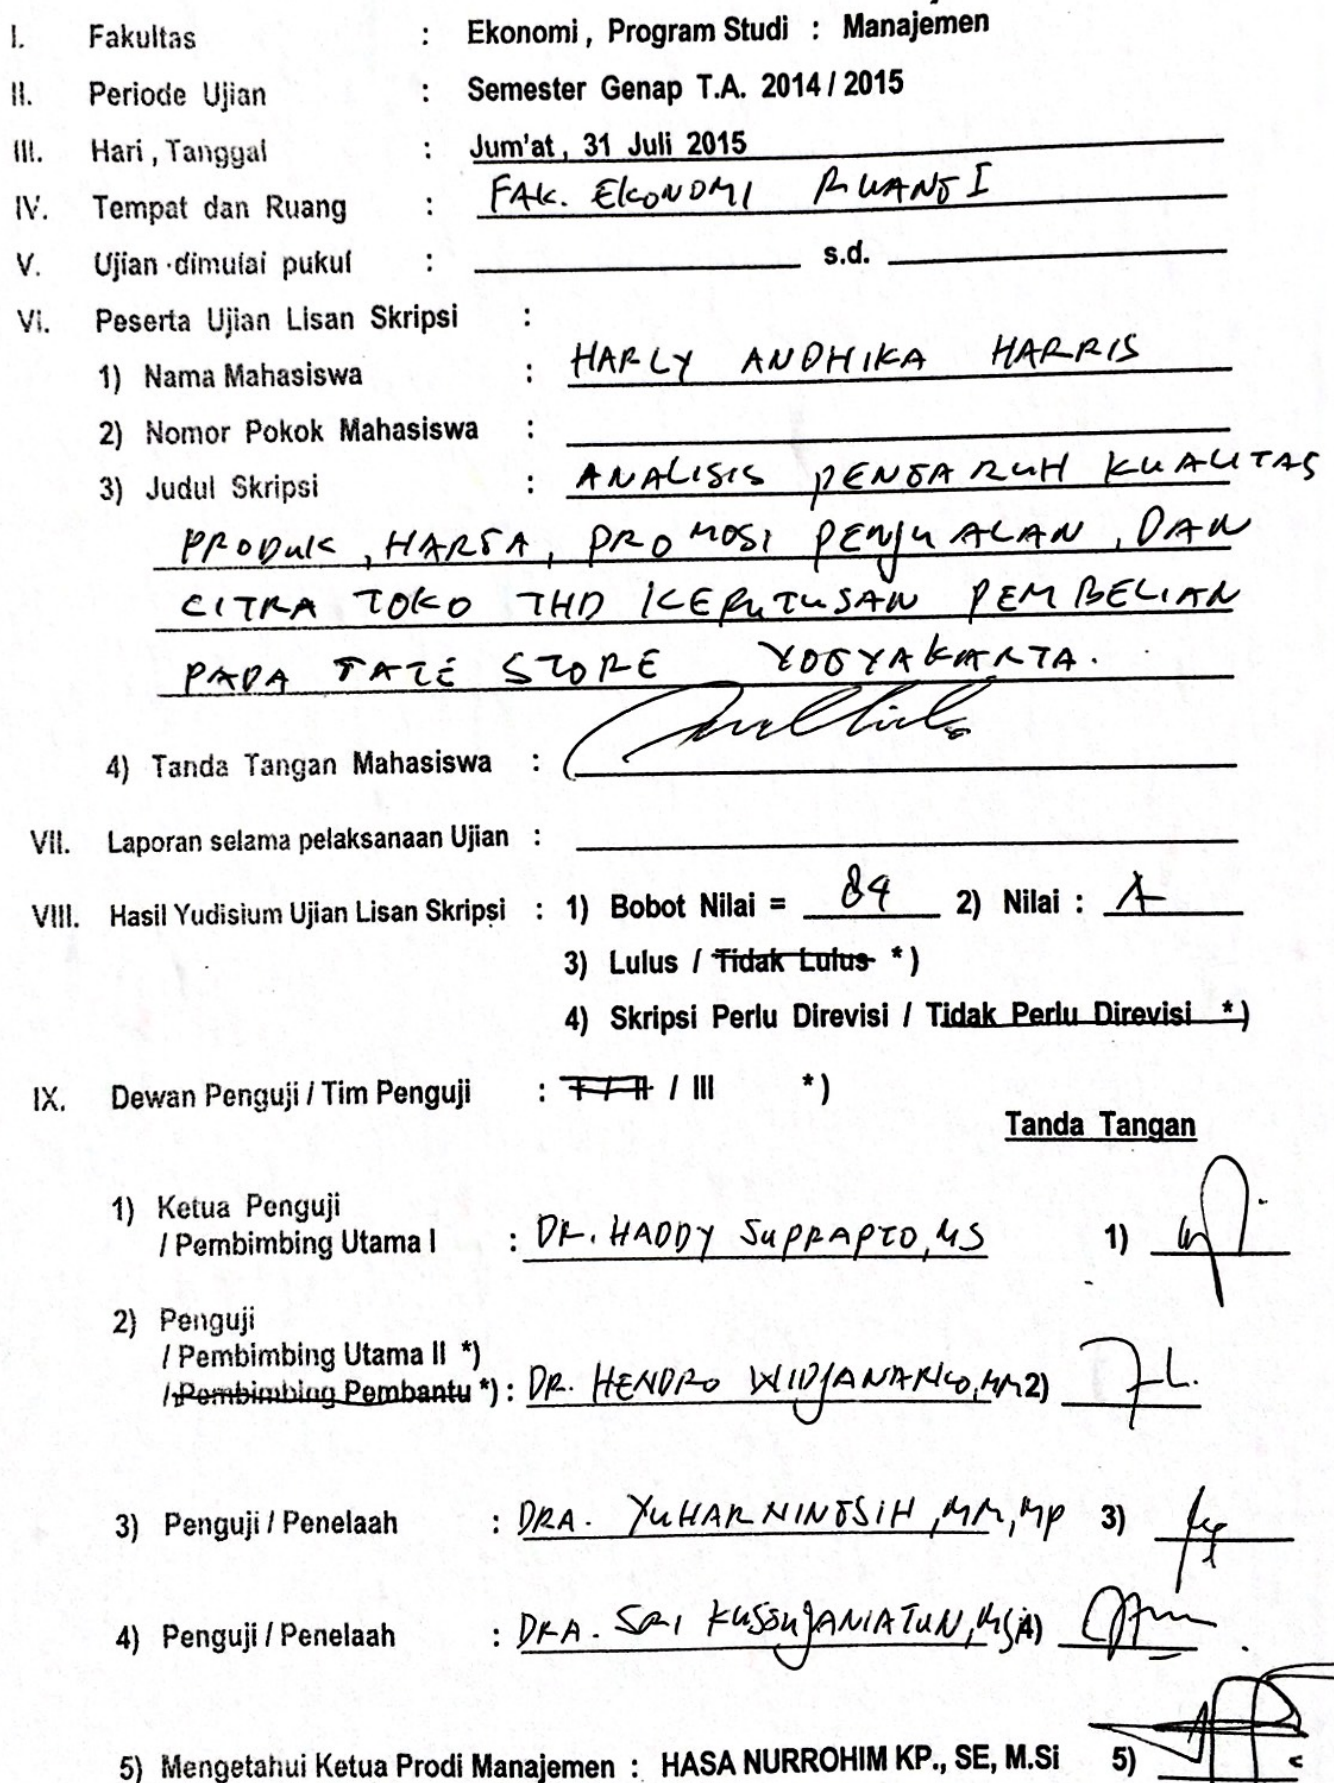 I. Fakultas : Ekonomi, Program Studi : Manajemen
II. Periode Ujian : Semester Genap T.A. 2014 / 2015
III. Hari, Tanggal : Jum'at, 31 Juli 2015
IV. Tempat dan Ruang : FAK. EKONOMI RUANG I
V. Ujian dimulai pukul : s.d.
VI. Peserta Ujian Lisan Skripsi :
1) Nama Mahasiswa : HARLY ANDHIKA HARRIS
2) Nomor Pokok Mahasiswa :
3) Judul Skripsi : ANALISIS PENGARUH KUALITAS
PRODUK, HARGA, PROMOSI PENJUALAN, DAN
CITRA TOKO THD KEPUTUSAN PEMBELIAN
PADA TATE STORE YOGYAKARTA.
4) Tanda Tangan Mahasiswa :
VII. Laporan selama pelaksanaan Ujian :
VIII. Hasil Yudisium Ujian Lisan Skripsi : 1) Bobot Nilai = 84 2) Nilai : A
3) Lulus / Tidak Lulus *)
4) Skripsi Perlu Direvisi / Tidak Perlu Direvisi *)
IX. Dewan Penguji / Tim Penguji : I / II / III *)
Tanda Tangan
1) Ketua Penguji
/ Pembimbing Utama I : DR. HADDY SUPRAPTO, MS 1)
2) Penguji
/ Pembimbing Utama II *)
/ Pembimbing Pembantu *) : DR. HENDRO WIDJANARKO, MM 2)
3) Penguji / Penelaah : DRA. YUHARNINGSIH, MM, MP 3)
4) Penguji / Penelaah : DRA. SRI KUSSUJANIATUN, MSi 4)
5) Mengetahui Ketua Prodi Manajemen : HASA NURROHIM KP., SE, M.Si 5)